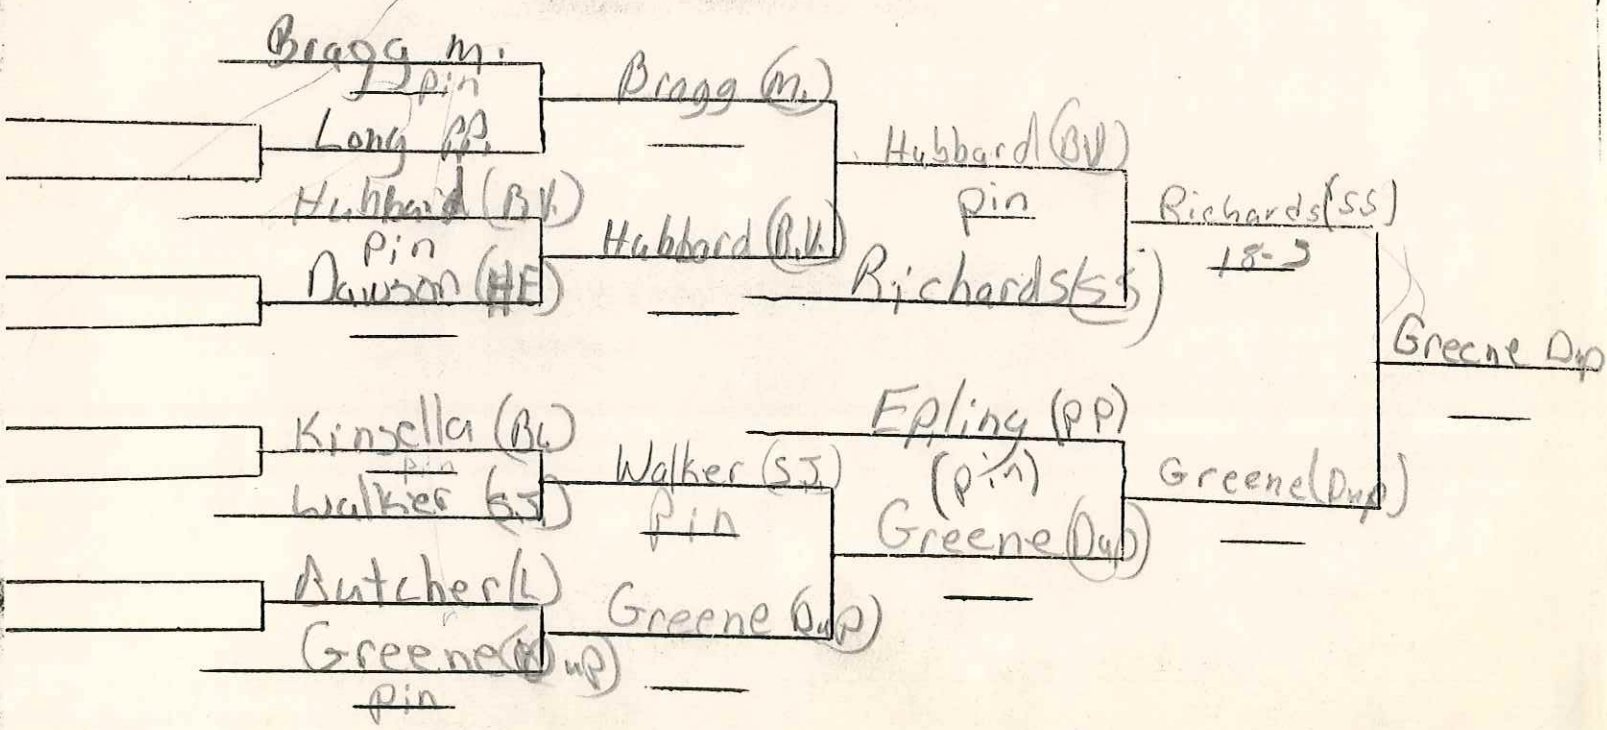 Bragg M.
pin
Long P.P.
Hubbard (B.V.)
pin
Dawson (HE)
Kinsella (BW)
pin
Walker (S.J)
Butcher (L)
Greene (Dup)
pin
Bragg (M.)
Hubbard (B.V.)
Walker (S.J.)
pin
Greene (Dup)
Hubbard (BV)
pin
Richards (SS)
Epling (PP)
(pin)
Greene (Dup)
Richards (SS)
18-3
Greene (Dup)
Greene Dup